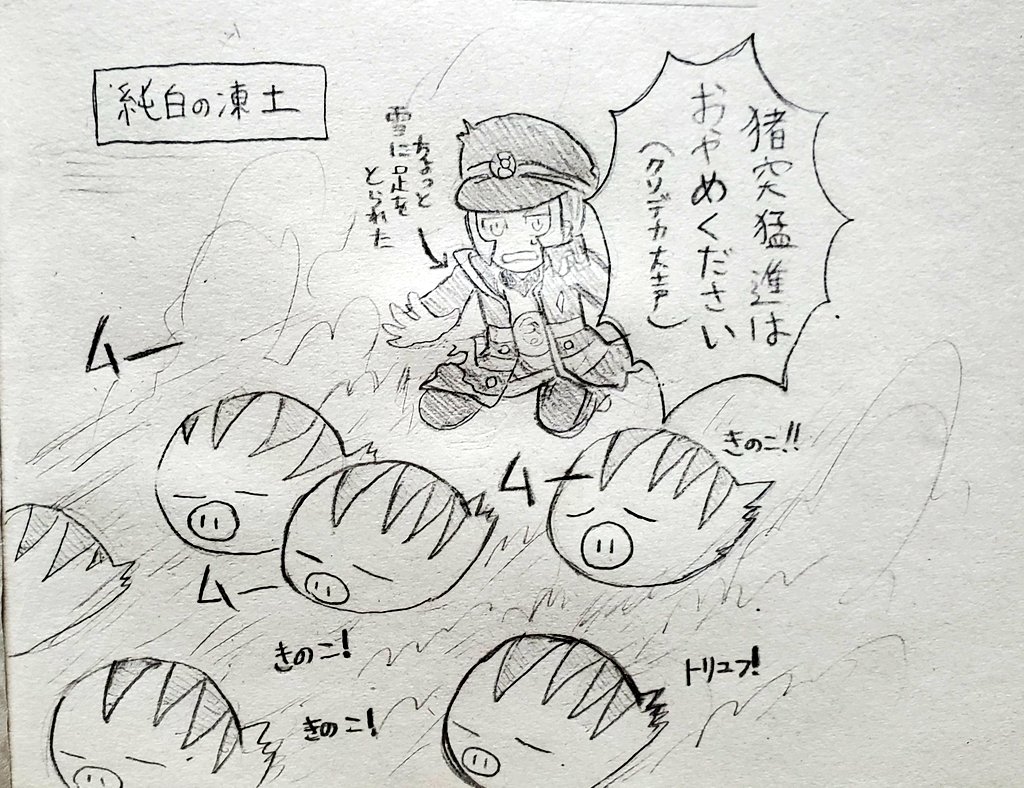 純白の凍土
猪突猛進は
おやめください
(クソデカ大声)
ちょっと
雪に足を
とられた
ムー
ムー
きのこ!!
ムー
きのこ!
トリュフ!
きのこ!